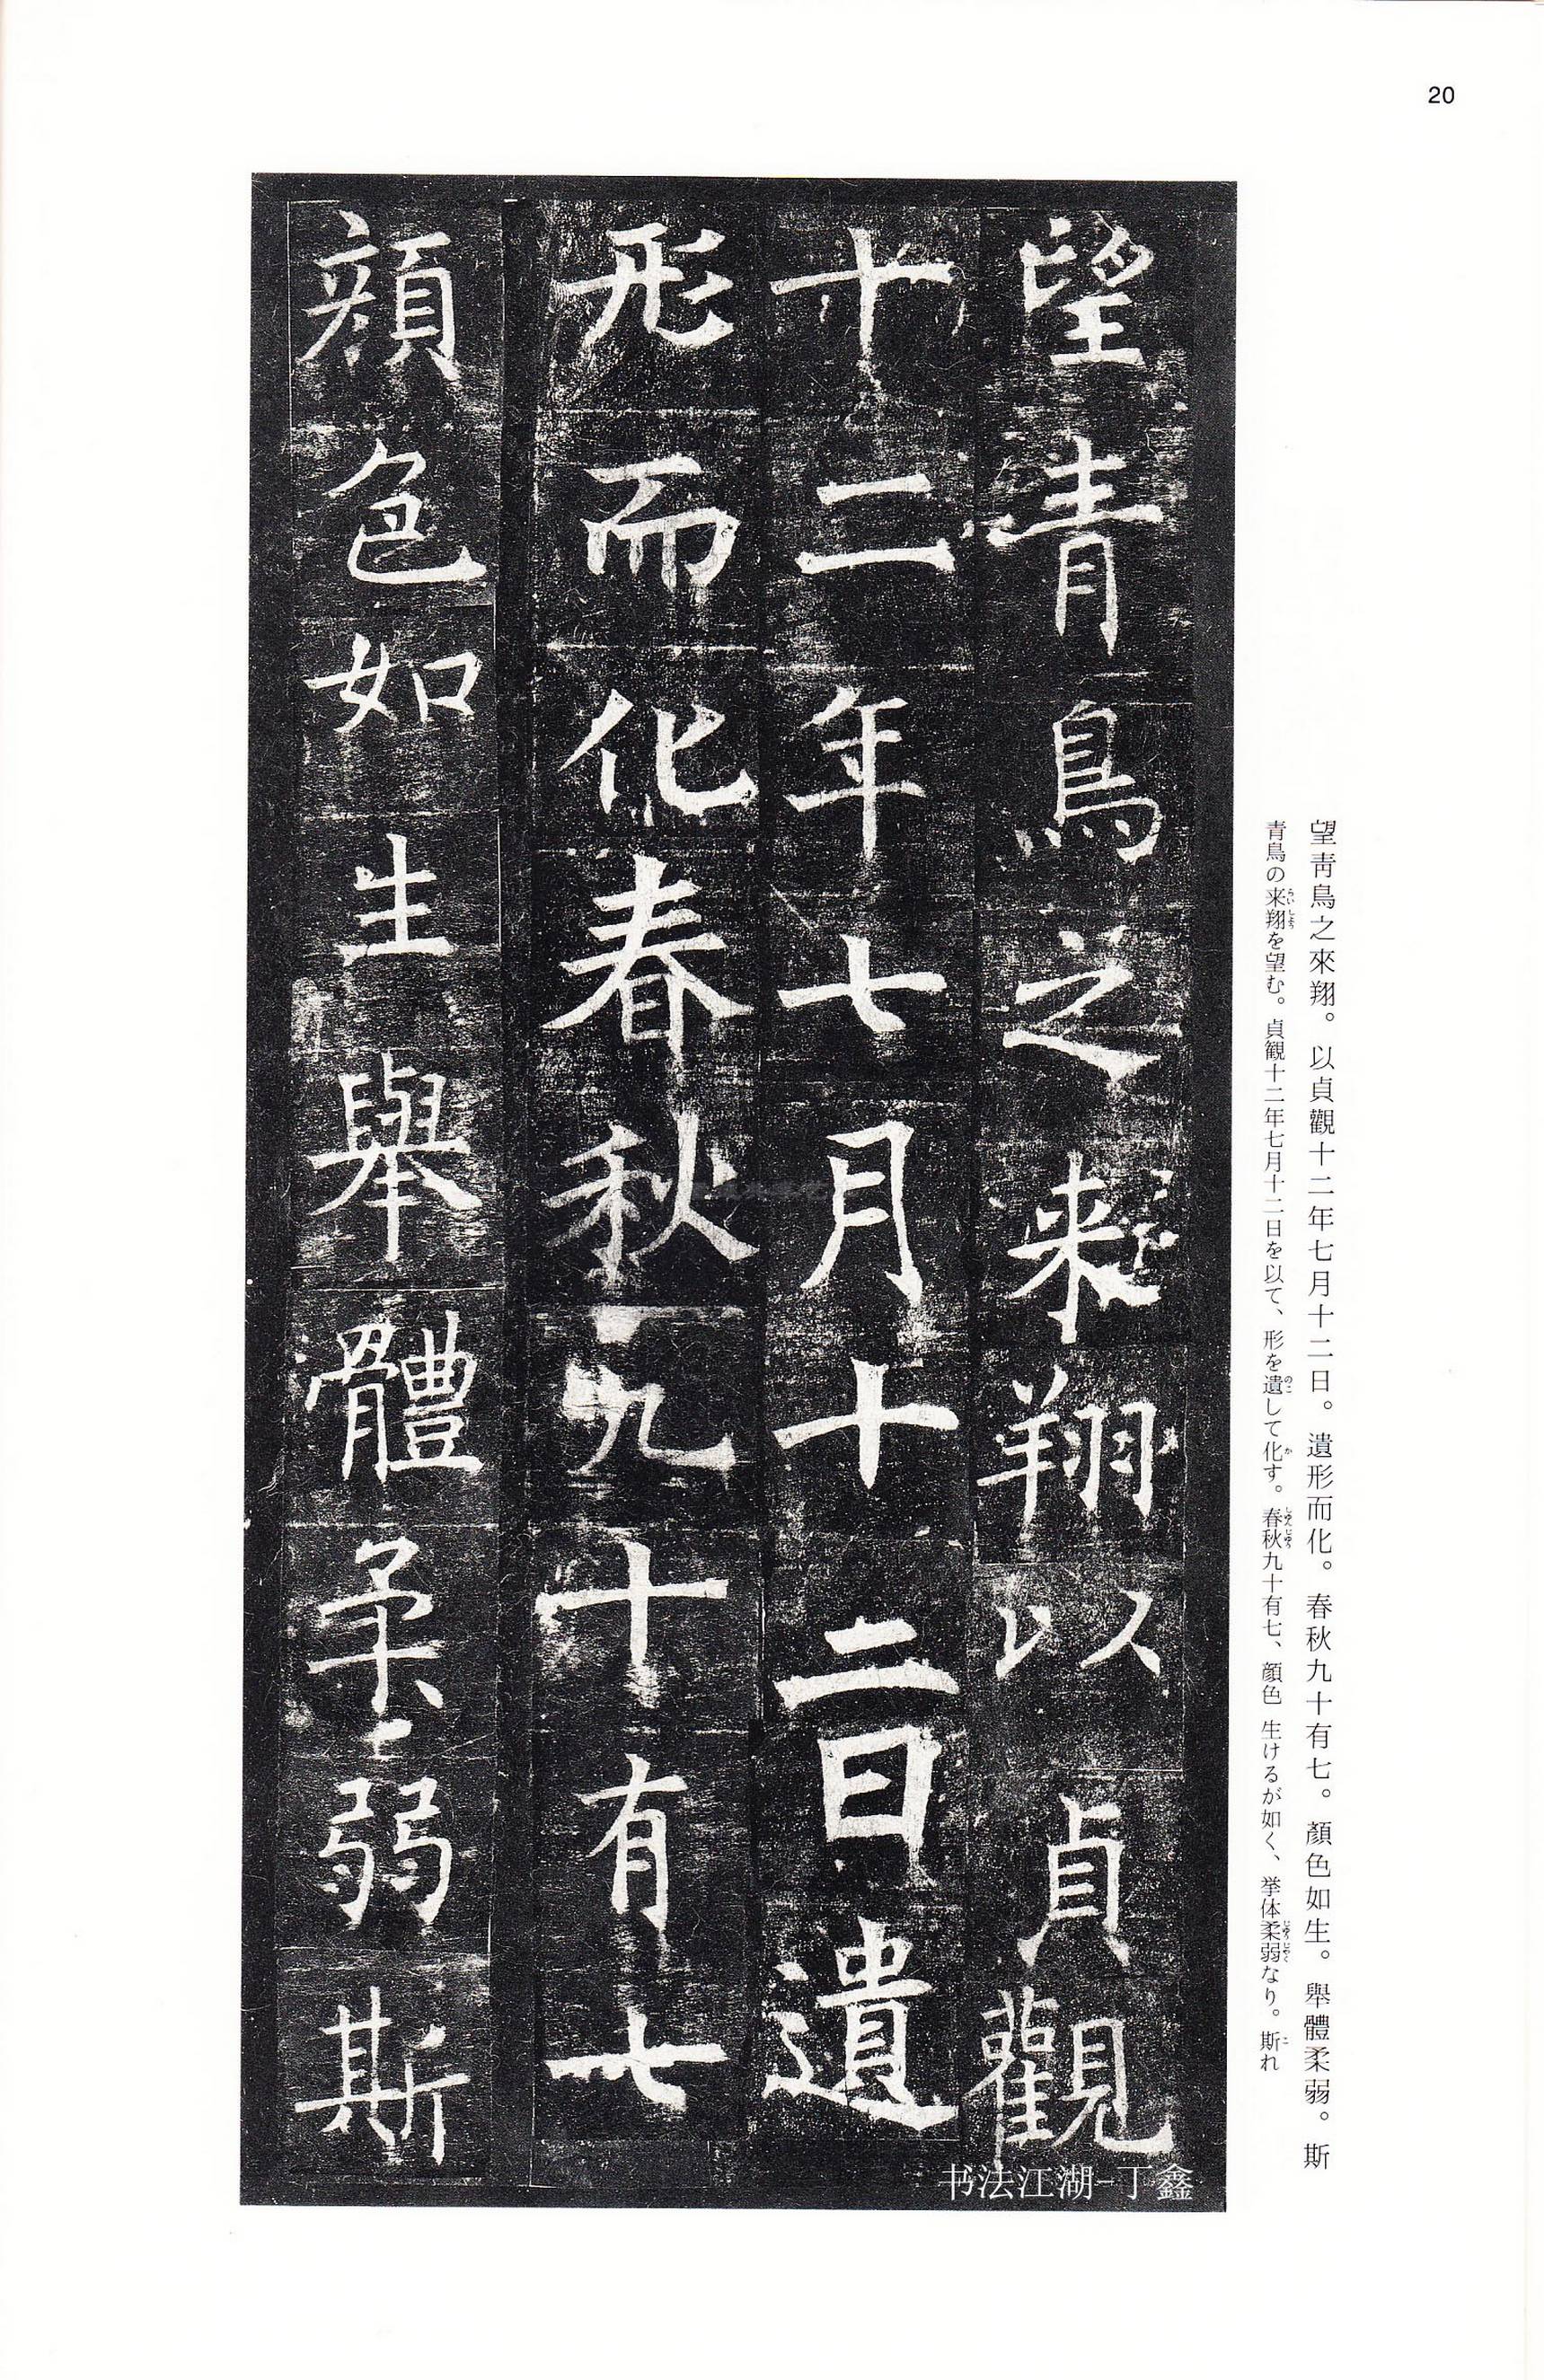 20
望靑鳥之來翔。以貞觀十二年七月十二日。遺形而化。春秋九十有七。顏色如生。舉體柔弱。斯
青鳥の来翔を望む。貞観十二年七月十二日を以て、形を遺して化す。春秋九十有七、顔色 生けるが如く、挙体柔弱なり。斯れ
望青鳥之来翔以貞觀
十二年七月十二日遺
形而化春秋九十有七
顔色如生舉體柔弱斯
书法江湖-丁鑫